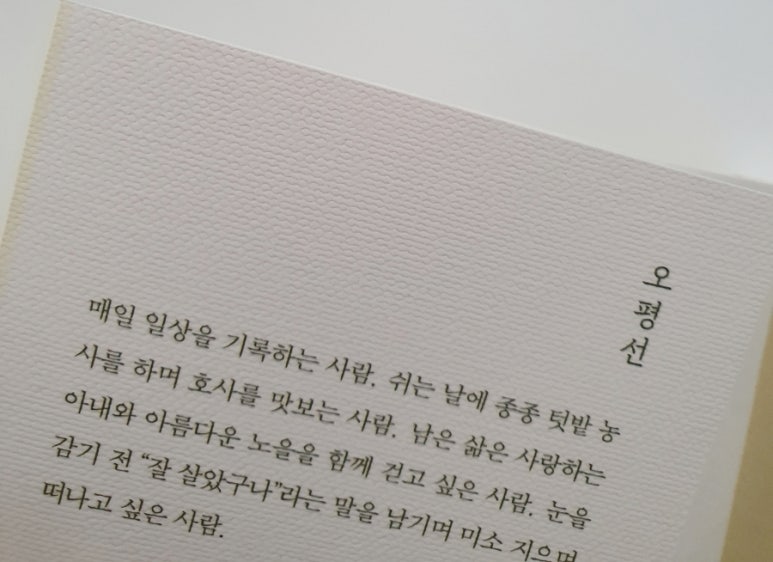 오평선
매일 일상을 기록하는 사람. 쉬는 날에 종종 텃밭 농
사를 하며 호사를 맛보는 사람. 남은 삶은 사랑하는
아내와 아름다운 노을을 함께 걷고 싶은 사람. 눈을
감기 전 “잘 살았구나”라는 말을 남기며 미소 지으며
떠나고 싶은 사람.